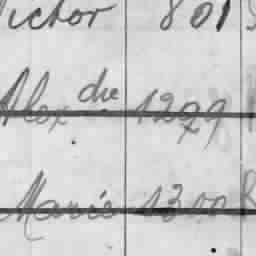 Victor 801
Alexdre 1299
Marie 1300